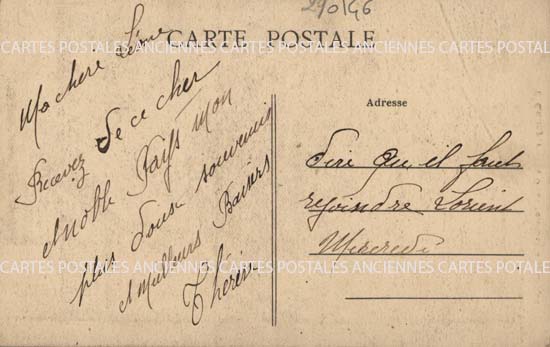 290146
CARTE POSTALE
CARTES POSTALES ANCIENNES CARTES POSTALES ANCIENNES CARTES POSTALES
Ma chère
Recevez de ce cher
et noble Pays mon
plus doux souvenir
et meilleurs Baisers
Thérèse
Adresse
dire qu'il faut
rejoindre Lorient
Mercredi
CARTES POSTALES ANCIENNES CARTES POSTALES ANCIENNES CARTES POSTALES